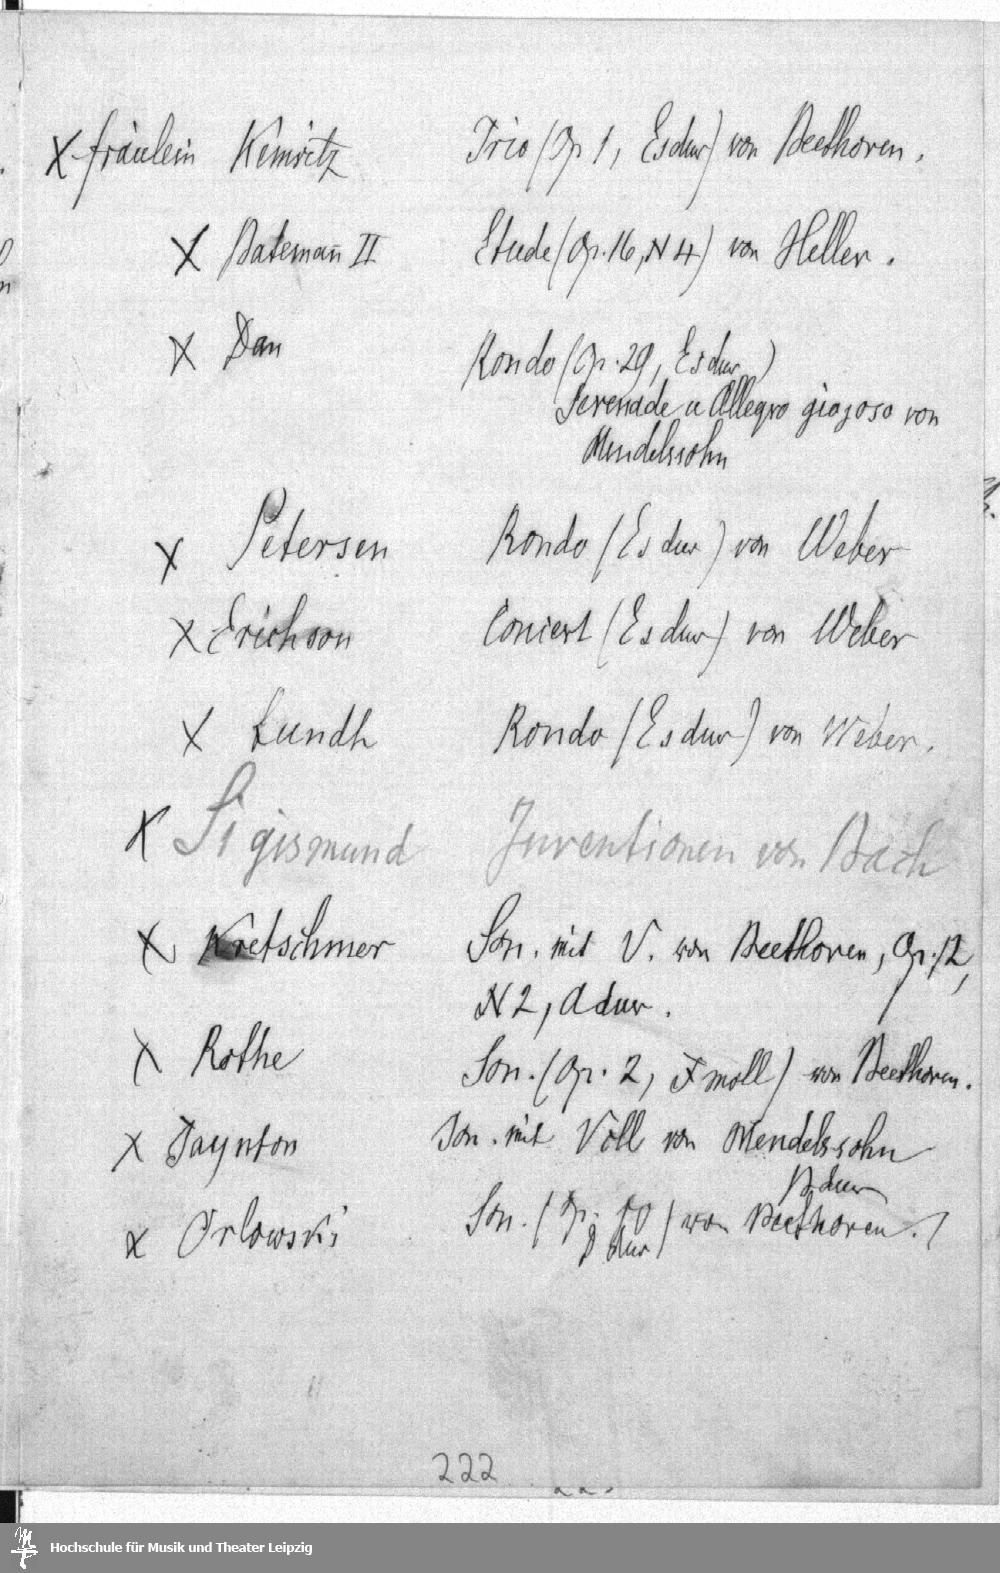 X Fräulein Kemnitz Trio (Op 1, Esdur) von Beethoven.
X Bateman̄ II Etude (Op. 16, N 4) von Heller.
X Dan Rondo (Op. 29, Esdur)
Serenade u Allegro giojoso von
Mendelssohn
X Petersen Rondo (Es dur) von Weber
X Erichson Concert (Es dur) von Weber
X Lundh Rondo (Es dur) von Weber.
X Sigismund Inventionen von Bach
X Kretschmer Son. mit V. von Beethoven, Op. 12,
N 2, A dur.
X Rothe Son. (Op. 2, F moll) von Beethoven.
X Taynton Son. mit Vcll von Mendelssohn
B dur
X Orlowski Son. (Op. 10 von Beethoven.)
D dur)
222
Hochschule für Musik und Theater Leipzig